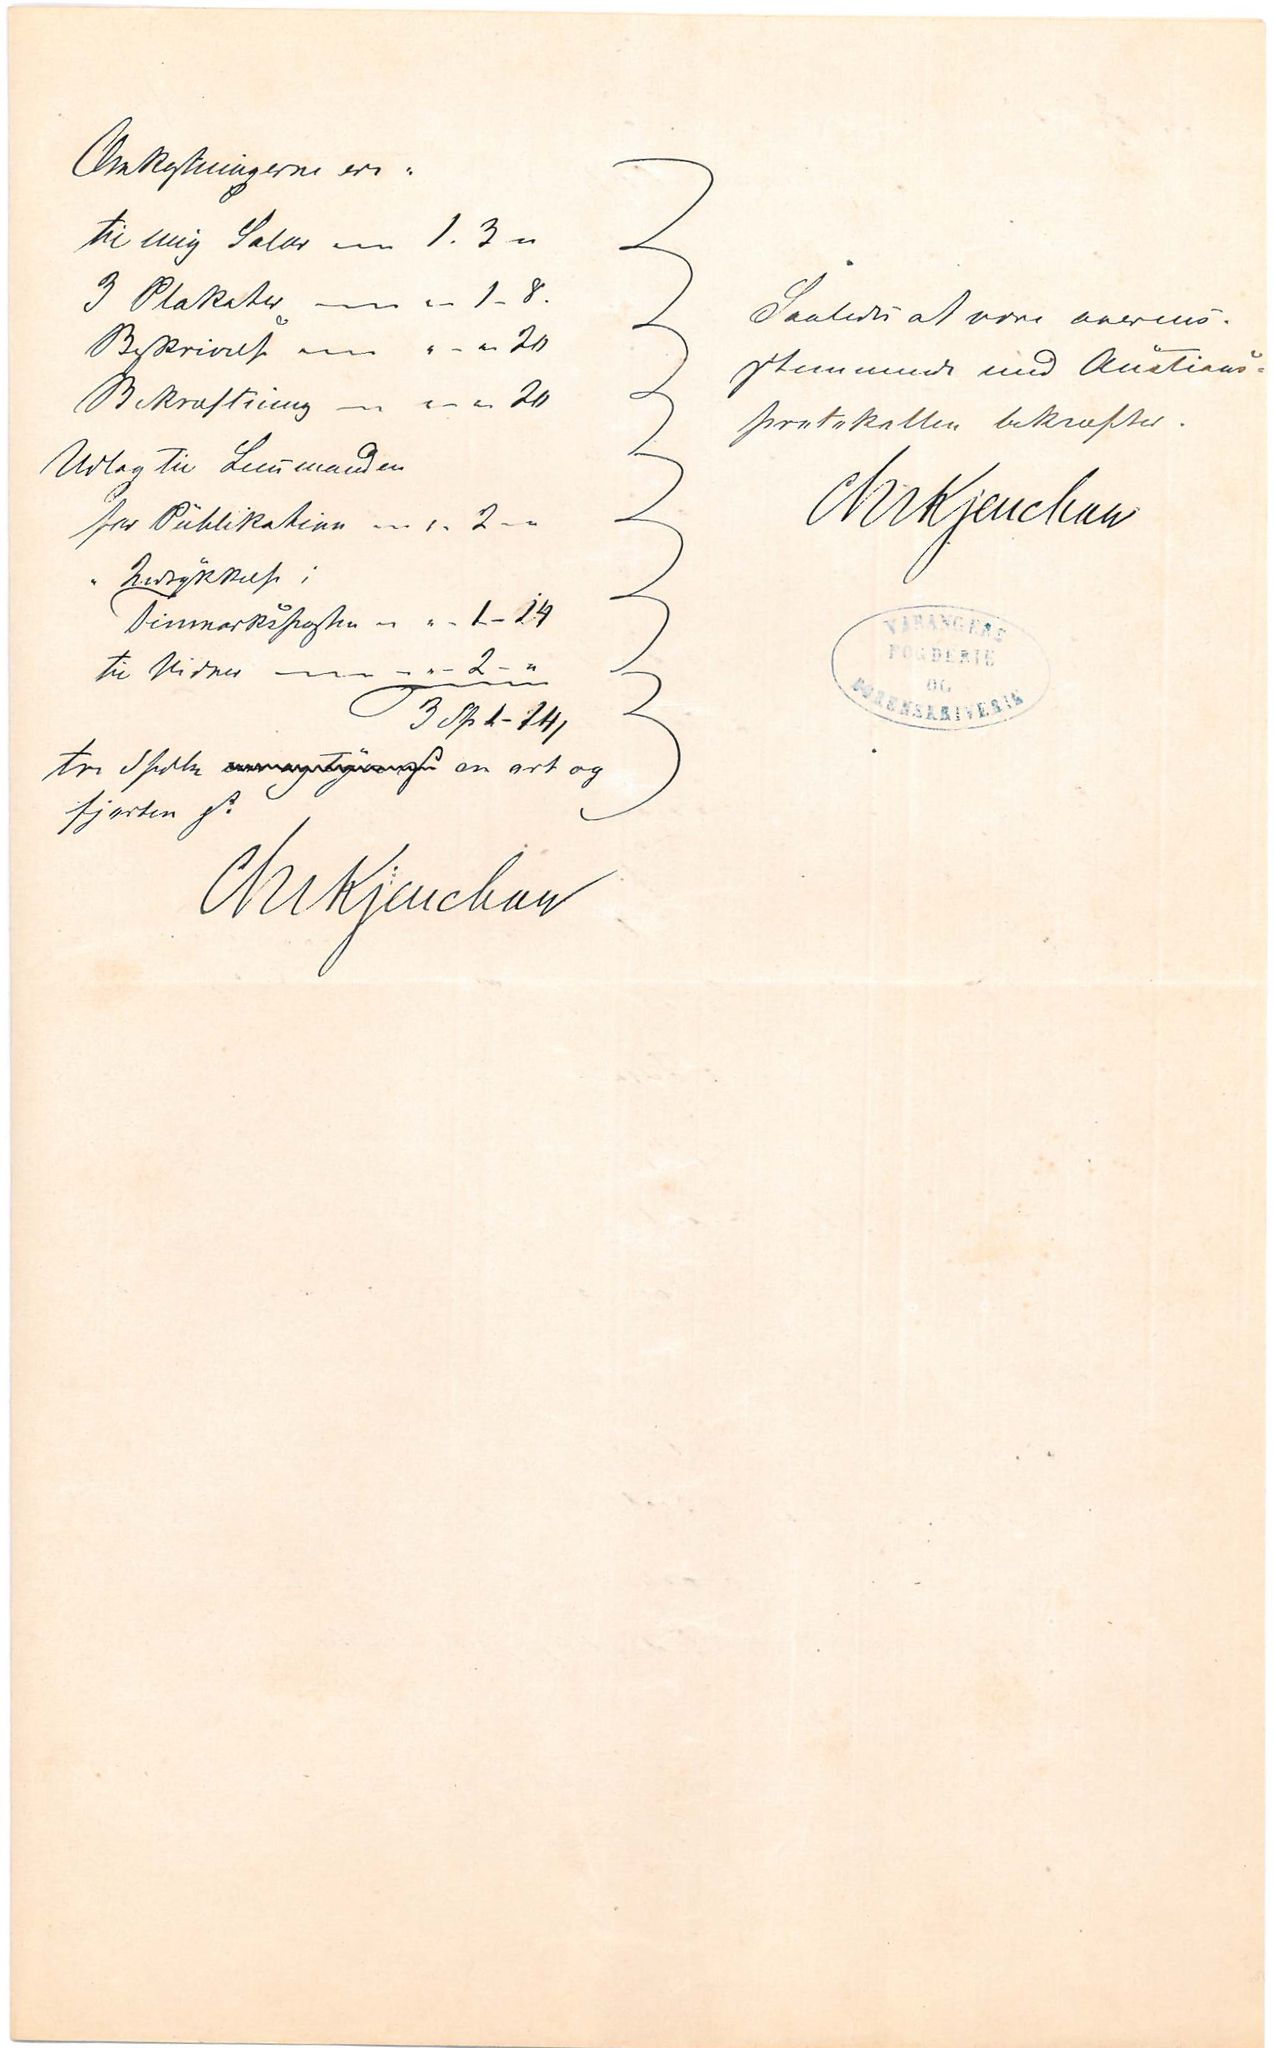 Omkostningerne ere:
til mig Salær — 1. 3 "
3 Plakater — " - 1 - 8.
Beskrivelse — " - " 20
Bekræftning — " - " 20
Udlæg til Lensmanden
for Publikation — " - 2 - "
" Indrykkelse i
Finmarksposten — " - 1 - 14
til Vidner — " - 2 - "
3 Spd 1 - 14,
tre Spdlr en ort og
fjorten s.
Chr Kjenchow
Saaledes at være overens-
stemmende med Auktions-
protokollen bekræfter.
Chr Kjenchow
VARANGERS
FOGDERIE
OG
SORENSKRIVERIE